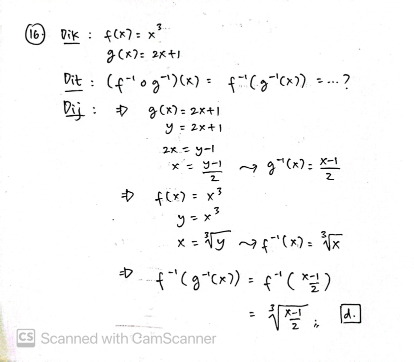 16. Dik : f(x) = x³
g(x) = 2x+1
Dit : (f⁻¹ o g⁻¹)(x) = f⁻¹(g⁻¹(x)) = ...?
Dij : ⇒ g(x) = 2x+1
y = 2x+1
2x = y-1
x = (y-1)/2 ⇝ g⁻¹(x) = (x-1)/2
⇒ f(x) = x³
y = x³
x = ∛y ⇝ f⁻¹(x) = ∛x
⇒ f⁻¹(g⁻¹(x)) = f⁻¹((x-1)/2)
= ∛((x-1)/2) ; d.
CS Scanned with CamScanner